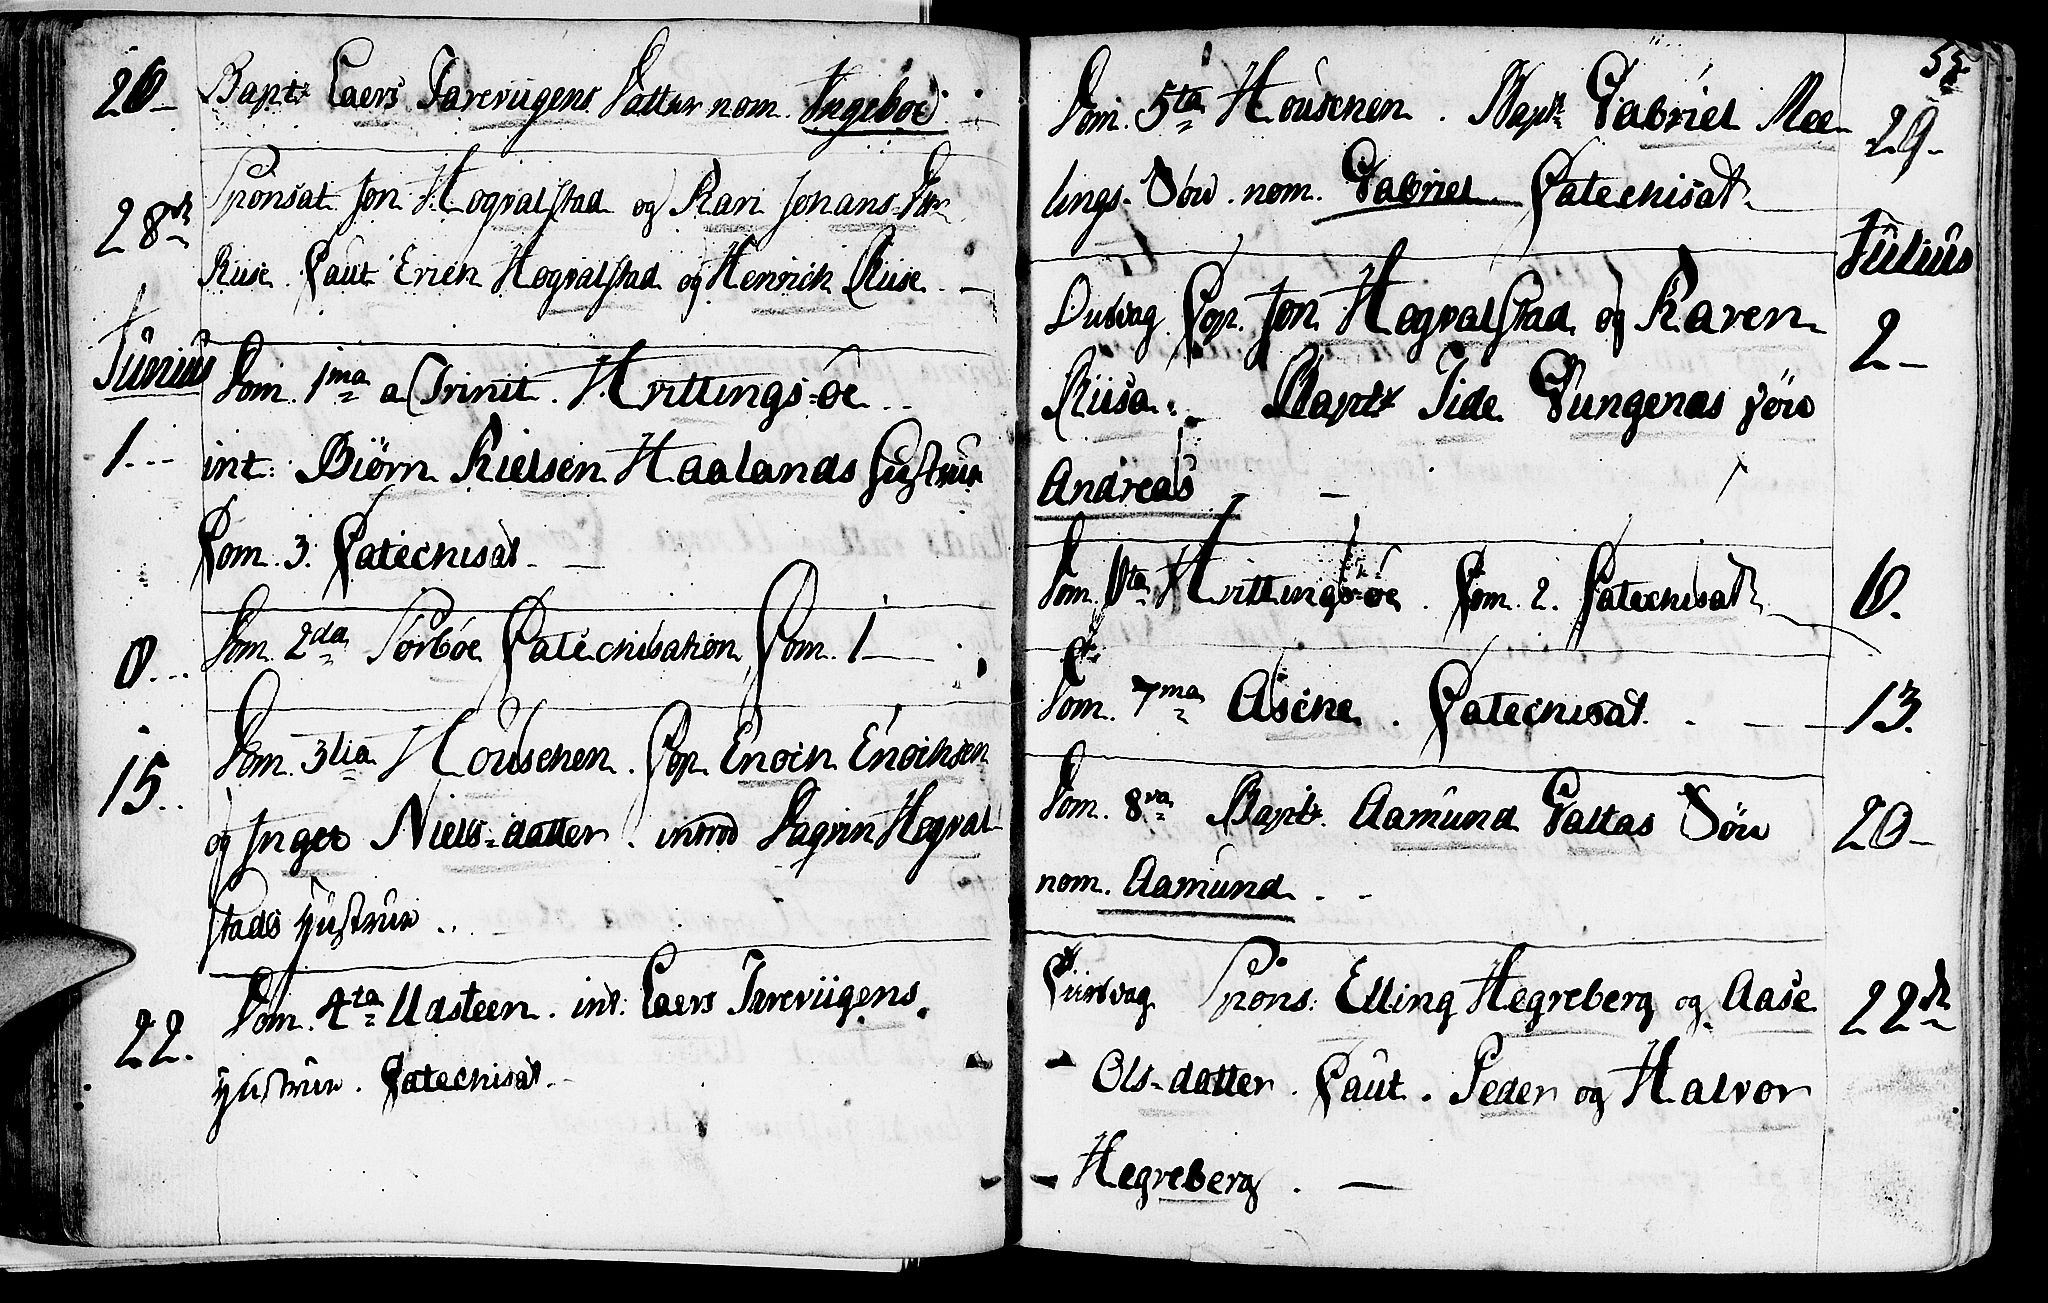 26 Bapt: Laers Tarevigens datter nom. Ingeboe
28de Sponsat Jon Hogvalstad og Kari Johans Dtr
Riise. Caut Erich Hogvalstad og Henrich Riise.
Junius
Dom. 1ma a Trinit. Hvittings-øe
1 int: Biørn Nielsen Haalands Hustrue
Com. 3. Catechisat
8 Dom. 2da Sørboe Catechisation Com. 1
15 Dom. 3tia Houschen. Cop. Enoch Enochsen
og Inger Niels-datter. introd Hegval
stads Hustrue
22. Dom. 4ta Udsteen. int: Laers Tarevigens
Hustrue. Catechisat
55
Dom. 5ta Houschen. Bapt: Gabriel Mee- 29
lings Søn nom. Gabriel Catechisat
Julius
Onsdag Cop. Jon Hogvalstad og Karen 2
Riisa. Bapt: Tungenes søn
Andreas
Dom. 6ta Hvittings-øe. Com. 2. Catechisat 6.
Dom. 7ma Aschе. Catechisat 13.
Dom. 8va Bapt: Aamund Galtas Søn 20
nom. Aamund
Spons: Elling Hegreberg og Aase 22de
Ols-datter. Caut. Peder og Halvor
Hegreberg.